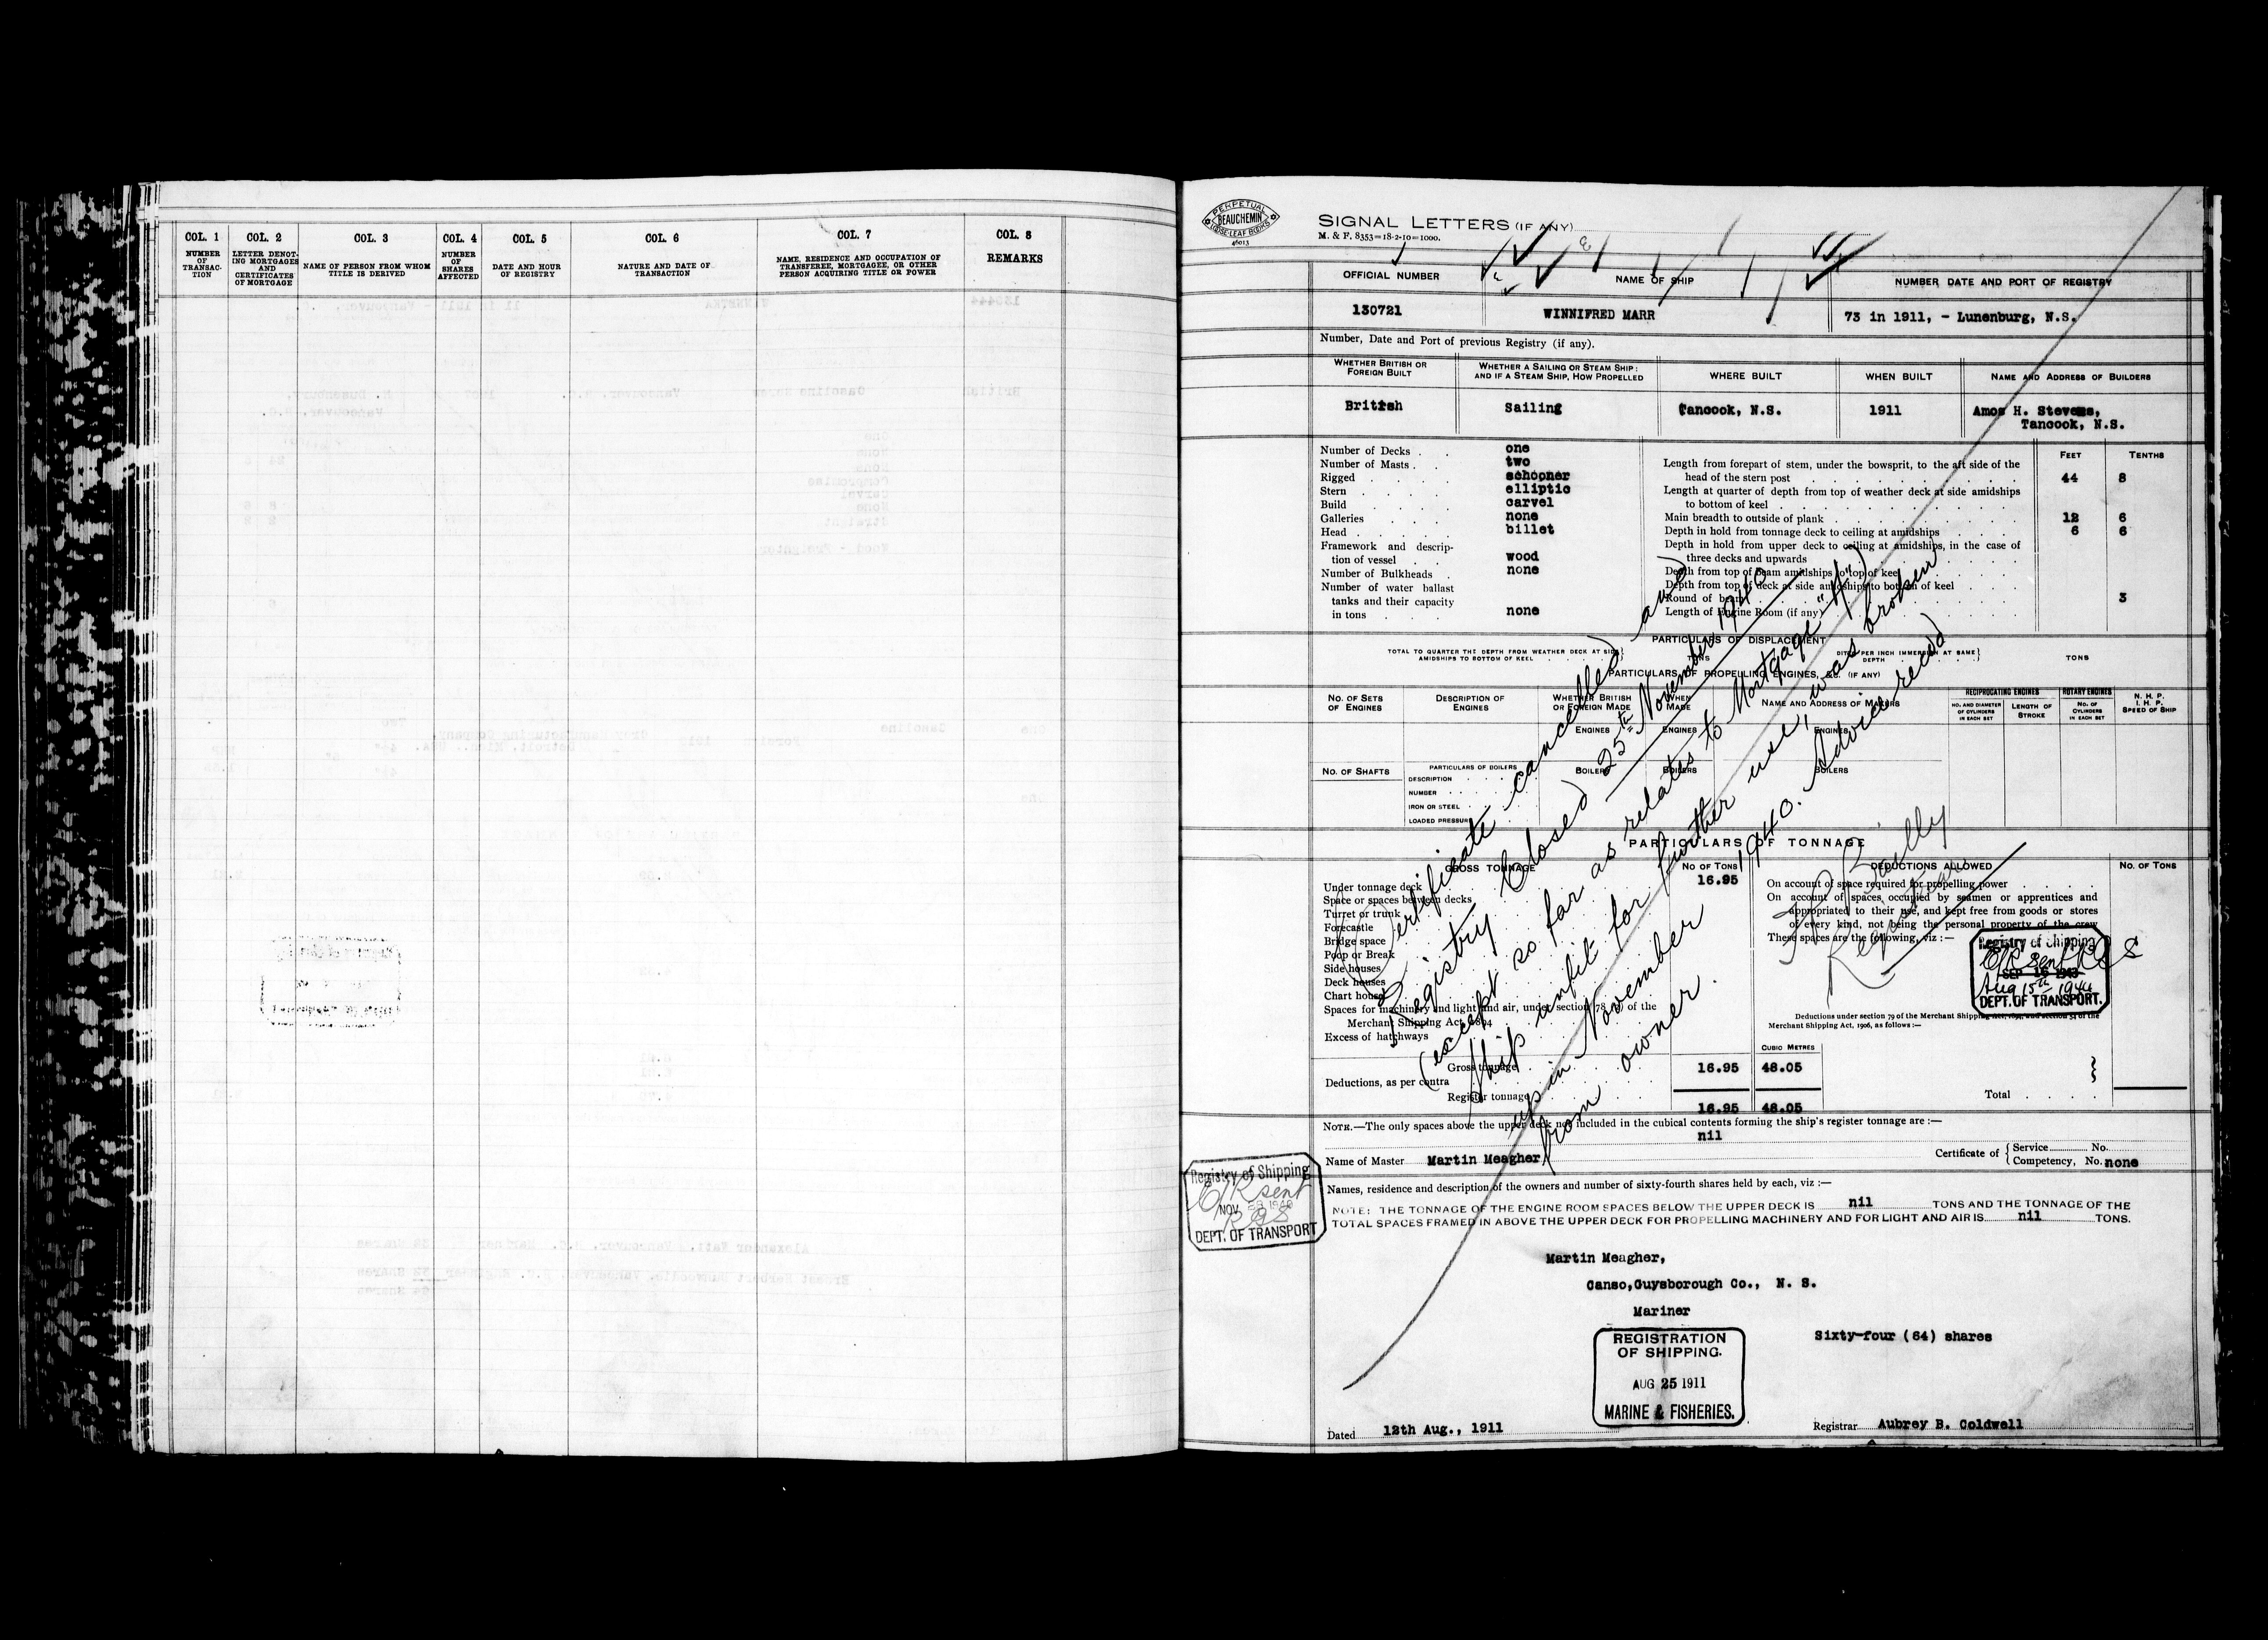 COL. 1
NUMBER OF TRANSACTION
COL. 2
LETTER DENOTING MORTGAGES AND CERTIFICATES OF MORTGAGE
COL. 3
NAME OF PERSON FROM WHOM TITLE IS DERIVED
COL. 4
NUMBER OF SHARES AFFECTED
COL. 5
DATE AND HOUR OF REGISTRY
COL. 6
NATURE AND DATE OF TRANSACTION
COL. 7
NAME, RESIDENCE AND OCCUPATION OF TRANSFEREE, MORTGAGEE, OR OTHER PERSON ACQUIRING TITLE OR POWER
COL. 8
REMARKS
PERPETUAL
BEAUCHEMIN
LOOSE-LEAF BOOKS
46013
SIGNAL LETTERS (IF ANY)
M. & F. 8353=18-2-10=1000.
OFFICIAL NUMBER
NAME OF SHIP
NUMBER DATE AND PORT OF REGISTRY
130721
WINNIFRED MARR
73 in 1911, - Lunenburg, N.S.
Number, Date and Port of previous Registry (if any).
WHETHER BRITISH OR FOREIGN BUILT
WHETHER A SAILING OR STEAM SHIP: AND IF A STEAM SHIP, HOW PROPELLED
WHERE BUILT
WHEN BUILT
NAME AND ADDRESS OF BUILDERS
British
Sailing
Tancook, N.S.
1911
Amos H. Stevens,
Tancook, N.S.
FEET
TENTHS
Number of Decks one
Number of Masts two
Rigged schooner
Stern elliptic
Build carvel
Galleries none
Head billet
Framework and description of vessel wood
Number of Bulkheads none
Number of water ballast tanks and their capacity in tons none
Length from forepart of stem, under the bowsprit, to the aft side of the head of the stern post 44 8
Length at quarter of depth from top of weather deck at side amidships to bottom of keel
Main breadth to outside of plank 12 6
Depth in hold from tonnage deck to ceiling at amidships 6 6
Depth in hold from upper deck to ceiling at amidships, in the case of three decks and upwards
Depth from top of beam amidships to top of keel
Depth from top of deck at side amidships to bottom of keel
Round of beam 3
Length of Engine Room (if any)
PARTICULARS OF DISPLACEMENT
TOTAL TO QUARTER THE DEPTH FROM WEATHER DECK AT SIDE AMIDSHIPS TO BOTTOM OF KEEL
TONS
DITTO PER INCH IMMERSION AT SAME DEPTH
TONS
PARTICULARS OF PROPELLING ENGINES, &C. (IF ANY)
NO. OF SETS OF ENGINES
DESCRIPTION OF ENGINES
WHETHER BRITISH OR FOREIGN MADE
WHEN MADE
NAME AND ADDRESS OF MAKERS
RECIPROCATING ENGINES
NO. AND DIAMETER OF CYLINDERS IN EACH SET
LENGTH OF STROKE
ROTARY ENGINES
NO. OF CYLINDERS IN EACH SET
N. H. P.
I. H. P.
SPEED OF SHIP
ENGINES
ENGINES
ENGINES
NO. OF SHAFTS
PARTICULARS OF BOILERS
DESCRIPTION
NUMBER
IRON OR STEEL
LOADED PRESSURE
BOILERS
BOILERS
BOILERS
PARTICULARS OF TONNAGE
GROSS TONNAGE
NO OF TONS
DEDUCTIONS ALLOWED
NO. OF TONS
Under tonnage deck 16.95
Space or spaces between decks
Turret or trunk
Forecastle
Bridge space
Poop or Break
Side houses
Deck houses
Chart house
Spaces for machinery and light and air, under section 78 (2) of the Merchant Shipping Act, 1894
Excess of hatchways
On account of space required for propelling power
On account of spaces occupied by seamen or apprentices and
appropriated to their use, and kept free from goods or stores
of every kind, not being the personal property of the crew
These spaces are the following, viz :—
Deductions under section 79 of the Merchant Shipping Act, 1894, and section 54 of the
Merchant Shipping Act, 1906, as follows :—
CUBIC METRES
Gross tonnage 16.95 48.05
Deductions, as per contra
Register tonnage 16.95 48.05
Total
Certificate cancelled and
Registry Closed 25th November, 1940
(except so far as relates to Mortgage "H")
Ship unfit for further use, was broken
up in November 1940. Advice recd
from owner.
Registrar
Registry of Shipping
C/R sent RGS
SEP 16 1943
Aug 15th 1944
DEPT. OF TRANSPORT.
NOTE.—The only spaces above the upper deck not included in the cubical contents forming the ship's register tonnage are :—
nil
Name of Master Martin Meagher
Certificate of { Service No.
Competency, No. none
Registry of Shipping
C/R sent
NOV 1940
RGS
DEPT. OF TRANSPORT
Names, residence and description of the owners and number of sixty-fourth shares held by each, viz :—
NOTE: THE TONNAGE OF THE ENGINE ROOM SPACES BELOW THE UPPER DECK IS nil TONS AND THE TONNAGE OF THE
TOTAL SPACES FRAMED IN ABOVE THE UPPER DECK FOR PROPELLING MACHINERY AND FOR LIGHT AND AIR IS nil TONS.
Martin Meagher,
Canso,Guysborough Co., N. S.
Mariner
Sixty-four (64) shares
REGISTRATION
OF SHIPPING.
AUG 25 1911
MARINE & FISHERIES.
Dated 12th Aug., 1911
Registrar Aubrey B. Coldwell